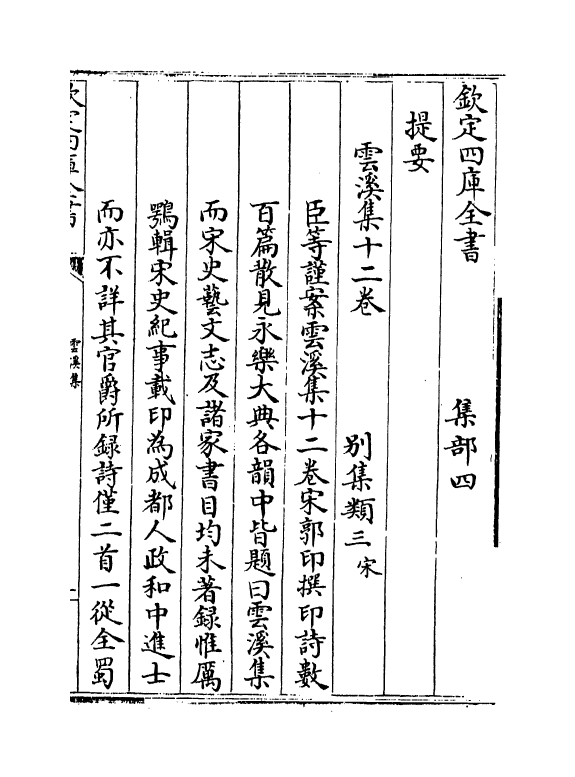 欽定四庫全書　集部四
提要
雲溪集十二卷　別集類三宋
臣等謹案雲溪集十二卷宋郭印撰印詩數
百篇散見永樂大典各韻中皆題曰雲溪集
而宋史藝文志及諸家書目均未著録惟厲
鶚輯宋史紀事載印為成都人政和中進士
而亦不詳其官爵所録詩僅二首一從全蜀
欽定四庫全書
雲溪集